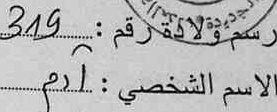 رسم ولادة رقم : 319
الاسم الشخصي : آدم